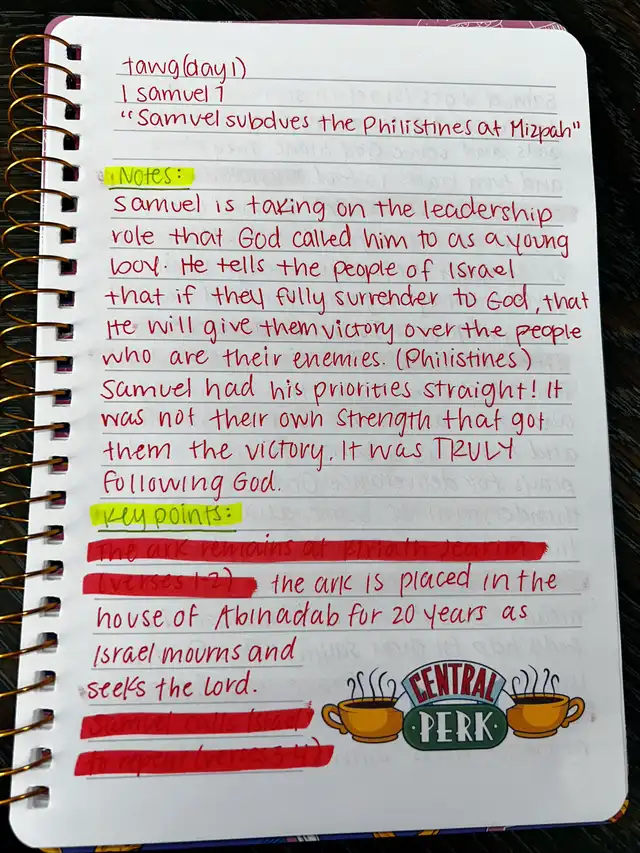 tawg(day1)
1 samuel 7
"Samuel subdues the Philistines at Mizpah"
Notes:
Samuel is taking on the leadership
role that God called him to as a young
boy. He tells the people of Israel
that if they fully surrender to God, that
He will give them victory over the people
who are their enemies. (Philistines)
Samuel had his priorities straight! It
was not their own strength that got
them the victory. It was TRULY
following God.
Key points:
The ark remains at Kiriath Jearim
(verses 1-2) the ark is placed in the
house of Abinadab for 20 years as
Israel mourns and
seeks the Lord.
Samuel calls
to repent (verses 3-4)
CENTRAL
PERK